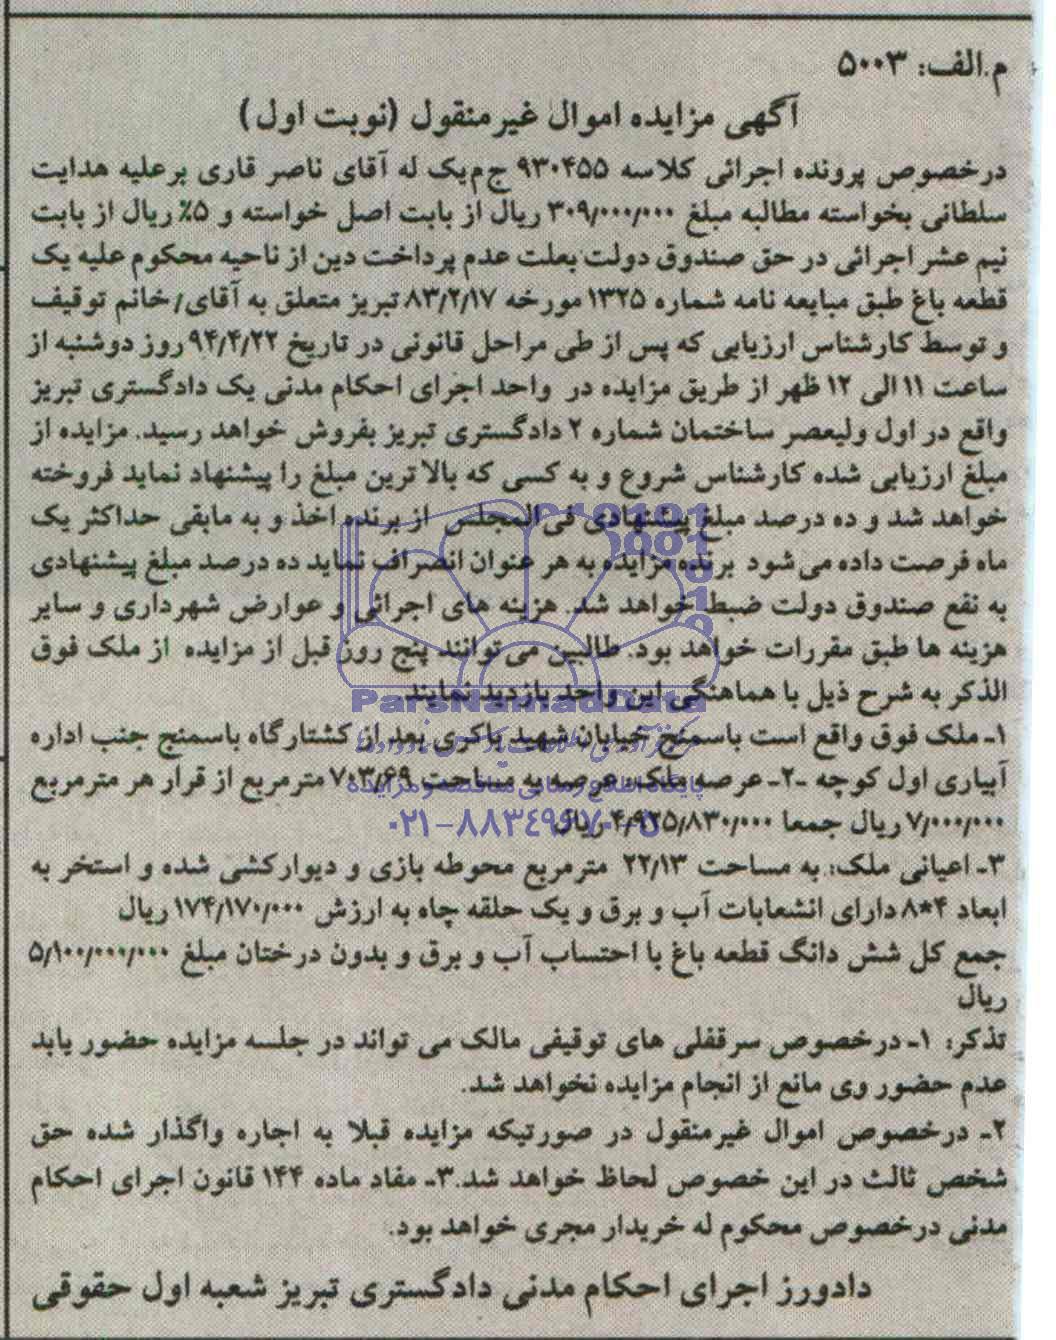 م.الف: ۵۰۰۳
آگهی مزایده اموال غیرمنقول (نوبت اول)
درخصوص پرونده اجرائی کلاسه ۹۳۰۴۵۵ ج م یک له آقای ناصر قاری بر علیه هدایت
سلطانی بخواسته مطالبه مبلغ ۳۰۹/۰۰۰/۰۰۰ ریال از بابت اصل خواسته و ۵٪ ریال از بابت
نیم عشر اجرائی در حق صندوق دولت بعلت عدم پرداخت دین از ناحیه محکوم علیه یک
قطعه باغ طبق مبایعه نامه شماره ۱۳۲۵ مورخه ۸۳/۲/۱۷ تبریز متعلق به آقای/خانم توقیف
و توسط کارشناس ارزیابی که پس از طی مراحل قانونی در تاریخ ۹۴/۴/۲۲ روز دوشنبه از
ساعت ۱۱ الی ۱۲ ظهر از طریق مزایده در واحد اجرای احکام مدنی یک دادگستری تبریز
واقع در اول ولیعصر ساختمان شماره ۲ دادگستری تبریز بفروش خواهد رسید. مزایده از
مبلغ ارزیابی شده کارشناس شروع و به کسی که بالاترین مبلغ را پیشنهاد نماید فروخته
خواهد شد و ده درصد مبلغ پیشنهادی فی المجلس از برنده اخذ و به مابقی حداکثر یک
ماه فرصت داده می شود برنده مزایده به هر عنوان انصراف نماید ده درصد مبلغ پیشنهادی
به نفع صندوق دولت ضبط خواهد شد. هزینه های اجرائی و عوارض شهرداری و سایر
هزینه ها طبق مقررات خواهد بود. طالبین می توانند پنج روز قبل از مزایده از ملک فوق
الذکر به شرح ذیل با هماهنگی این واحد بازدید نمایند
ParsNamadData
۱ـ ملک فوق واقع است باسمنج خیابان شهید باکری بعد از کشتارگاه باسمنج جنب اداره
آبیاری اول کوچه ـ۲ـ عرصه ملک: عرصه به مساحت ۷۰۳/۶۹ مترمربع از قرار هر مترمربع
پایگاه اطلاع رسانی مناقصه و مزایده
۷/۰۰۰/۰۰۰ ریال جمعا ۴/۹۲۵/۸۳۰/۰۰۰ ریال
۰۲۱-۸۸۳۴۹۶۷۰-۵
۳ـ اعیانی ملک: به مساحت ۲۲/۱۳ مترمربع محوطه بازی و دیوارکشی شده و استخر به
ابعاد ۴*۸ دارای انشعابات آب و برق و یک حلقه چاه به ارزش ۱۷۴/۱۷۰/۰۰۰ ریال
جمع کل شش دانگ قطعه باغ با احتساب آب و برق و بدون درختان مبلغ ۵/۱۰۰/۰۰۰/۰۰۰
ریال
تذکر: ۱ـ درخصوص سرقفلی های توقیفی مالک می تواند در جلسه مزایده حضور یابد
عدم حضور وی مانع از انجام مزایده نخواهد شد.
۲ـ درخصوص اموال غیرمنقول در صورتیکه مزایده قبلا به اجاره واگذار شده حق
شخص ثالث در این خصوص لحاظ خواهد شد.۳ـ مفاد ماده ۱۴۴ قانون اجرای احکام
مدنی درخصوص محکوم له خریدار مجری خواهد بود.
دادورز اجرای احکام مدنی دادگستری تبریز شعبه اول حقوقی